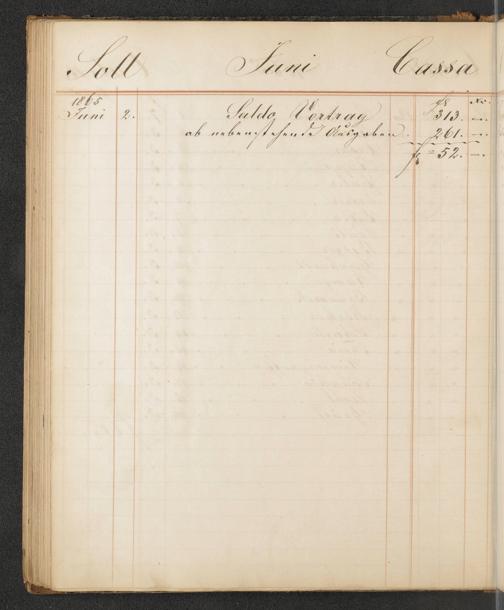 Soll Juni Cassa
1865
Juni 2. Saldo Vortrag 313. —.
ab nebenstehende Ausgaben. 261. —.
52. —.